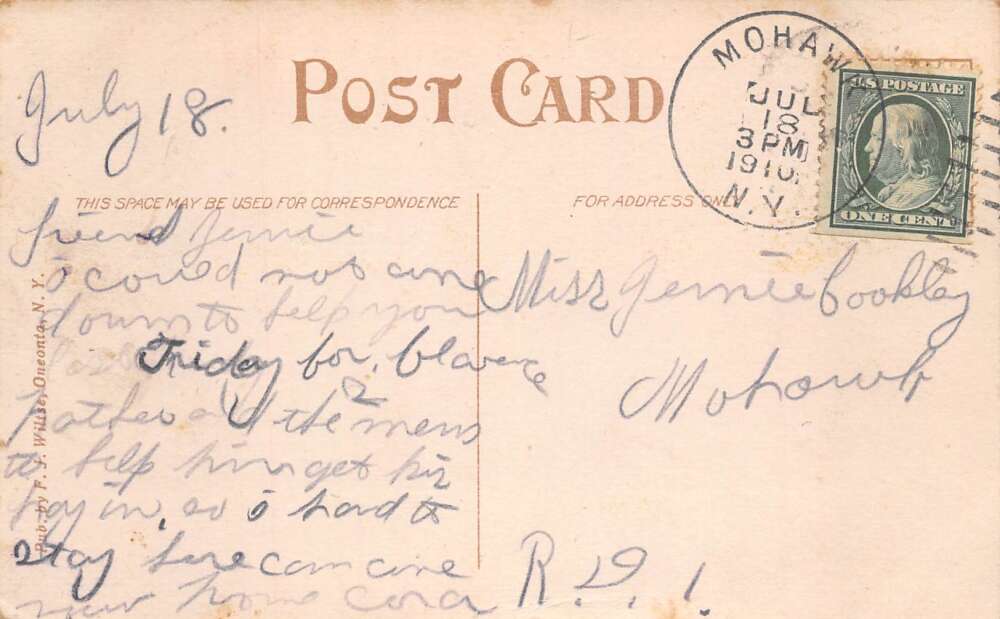 POST CARD
MOHAWK
JUL
18
3 PM
1910
N.Y.
U.S. POSTAGE
ONE CENT
July 18.
THIS SPACE MAY BE USED FOR CORRESPONDENCE
FOR ADDRESS ONLY
friend Jennie
i could not come
down to help you
Friday for Clarence
father all the mens
to help him get his
hay in. so i had to
stay here can come
now home Cora
Miss Jennie Cookley
Mohawk
R. D. 1.
Pub. by F. J. Wiltse, Oneonta, N. Y.